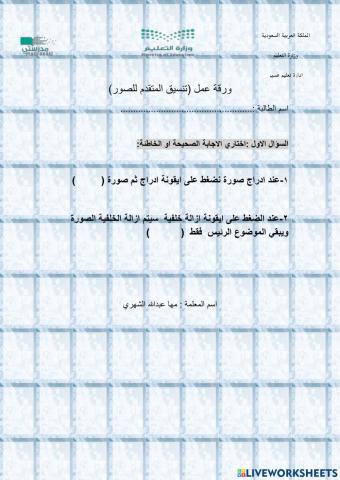 المملكة العربية السعودية
وزارة التعليم
ادارة تعليم عسير
مدرستي
وزارة التعليم
Ministry of Education
ورقة عمل (تنسيق المتقدم للصور)
اسم الطالبة :....................................................
السؤال الاول :اختاري الاجابة الصحيحة او الخاطئة:
١-عند ادراج صورة نضغط على ايقونة ادراج ثم صورة (        )
٢-عند الضغط على ايقونة ازالة خلفية  سيتم ازالة الخلفية الصورة
ويبقي الموضوع الرئيس  فقط  (          )
اسم المعلمة : مها عبدالله الشهري
LIVEWORKSHEETS